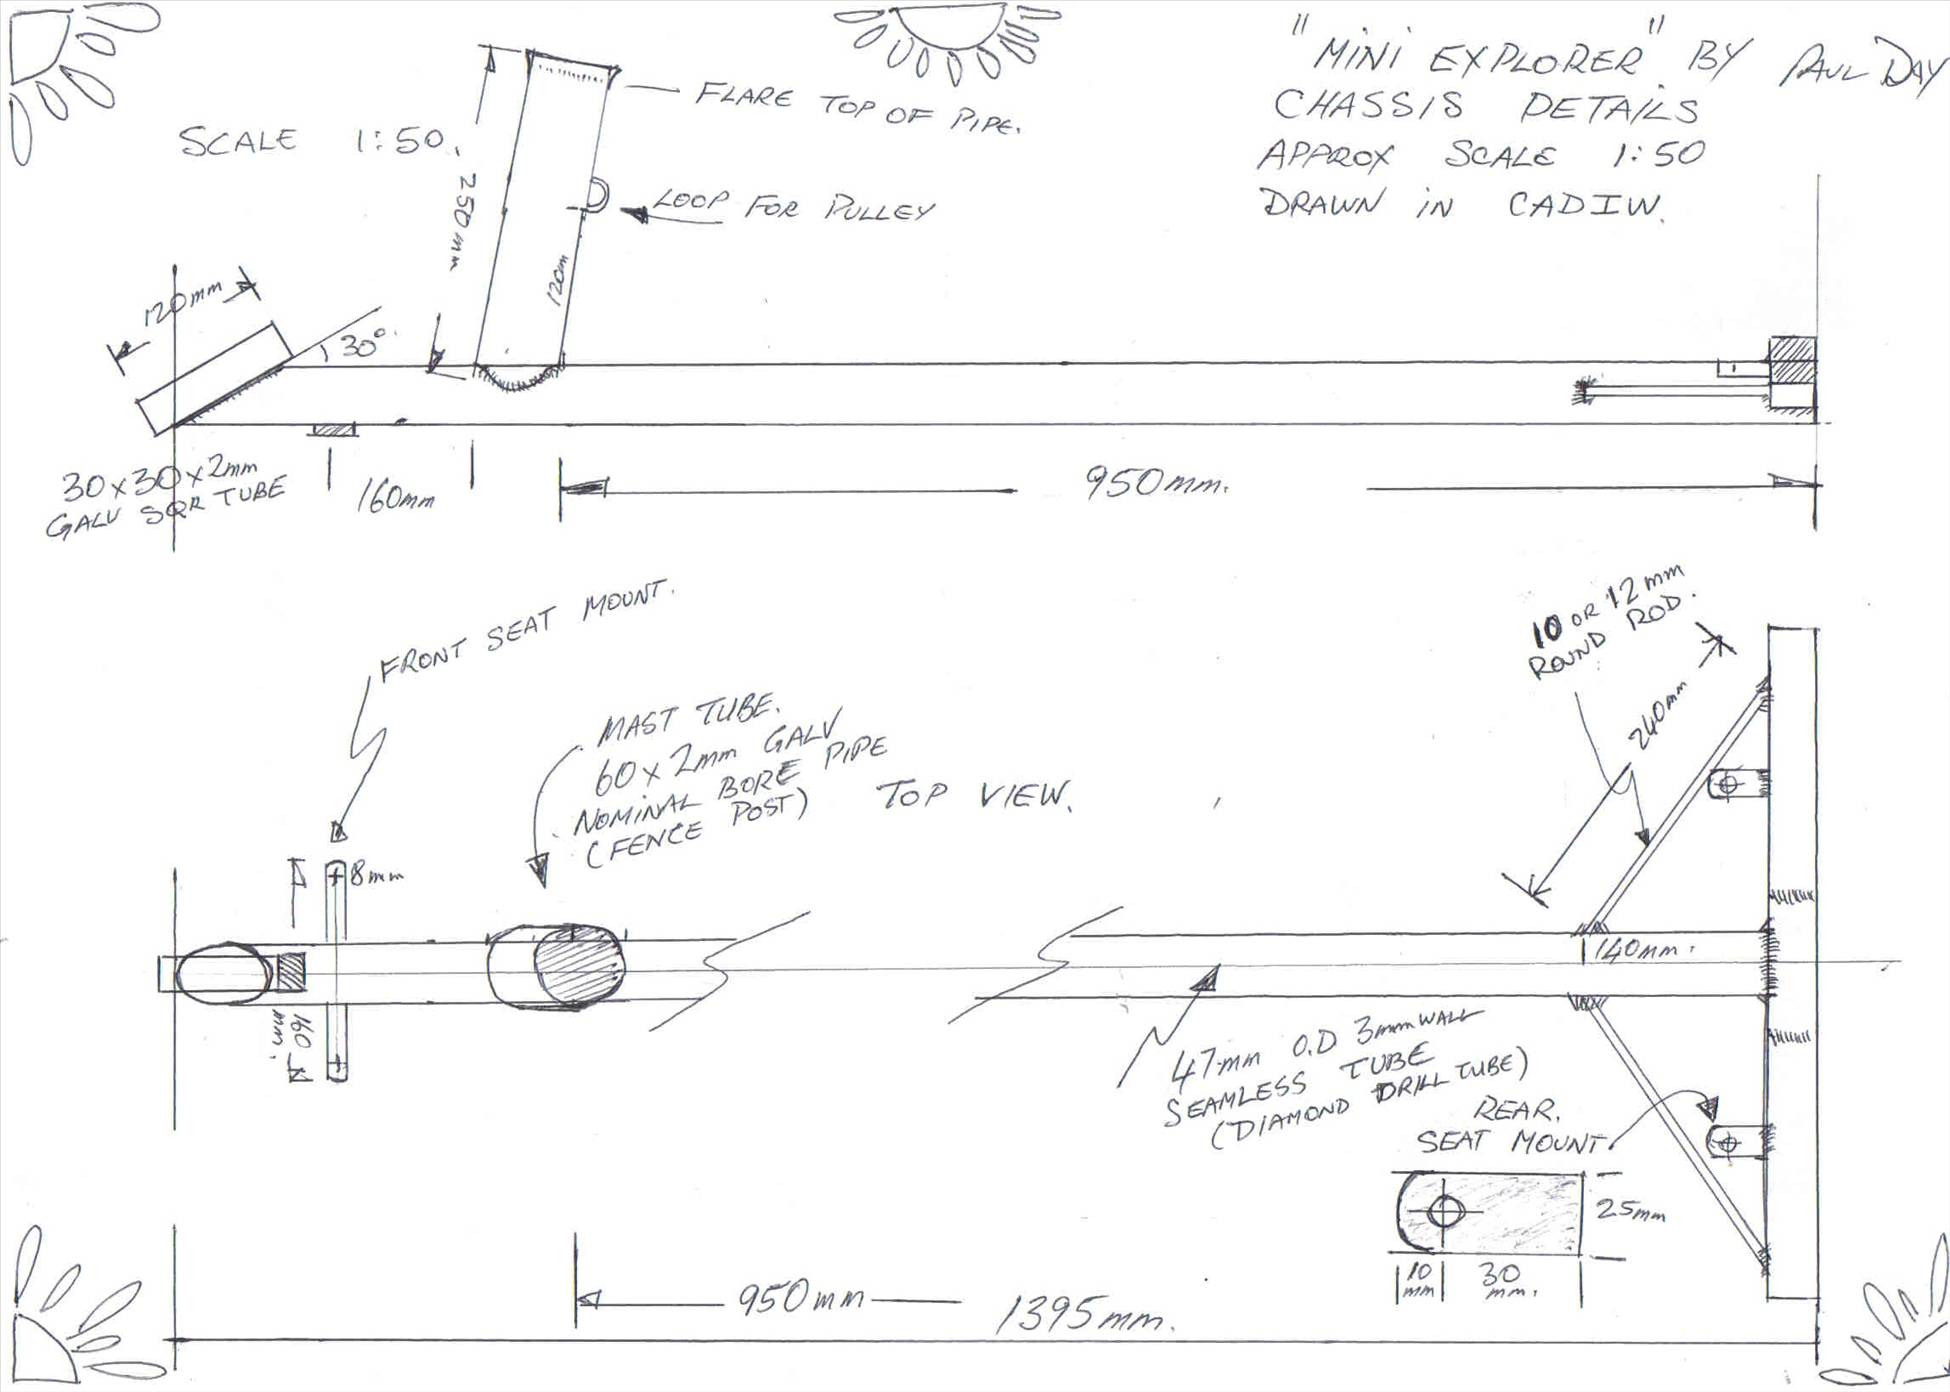 "MINI EXPLORER" BY PAUL DAY
CHASSIS DETAILS
APPROX SCALE 1:50
DRAWN IN CADIW.
SCALE 1:50.
FLARE TOP OF PIPE.
250mm
LOOP FOR PULLEY
120mm
120mm
30°.
30x30x2mm
GALV SQR TUBE
160mm
950mm.
FRONT SEAT MOUNT.
10 OR 12mm
ROUND ROD.
240mm
MAST TUBE.
60x2mm GALV
NOMINAL BORE PIPE
(FENCE POST)
TOP VIEW.
8mm
160
mm.
140mm.
47mm O.D 3mm WALL
SEAMLESS TUBE
(DIAMOND DRILL TUBE)
REAR.
SEAT MOUNT.
25mm
10
mm
30
mm.
950mm
1395mm.